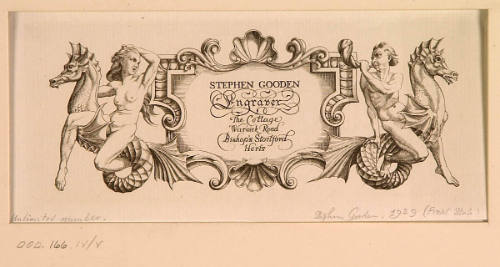 STEPHEN GOODEN
Engraver
The Cottage
Warwick Road
Bishop's Stortford
Herts
Unlimited number.
Stephen Gooden. 1929 (Final State)
000. 166. IV/V